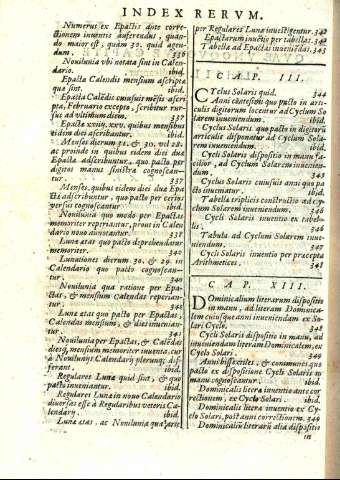 INDEX RERVM.
Numerus ex Epactis ante corre-
ctionem inuentis auferendus, quan-
do maior est, quàm 30. quid agen-
dum. 336
Nouilunia vbi notata sint in Calen-
dario. ibid.
Epacta Calendis mensium ascripta
quæ sint. ibid.
Epacta Calēdis cuiusuis mēsis ascri-
pta, Februario excepto, scribitur rur-
sus ad vltimum diem. 337
Epactæ xxiiij. xxv. quibus mensibus
eidem diei ascribantur. ibid.
Menses dierum 31. & 30. vel 28.
ac proinde in quibus eidem diei duæ
Epactæ adscribuntur, quo pacto per
digitos manus sinistræ cognoscan-
tur. 337
Menses, quibus eidem diei duæ Epa
ctæ adscribuntur, quo pacto per certos
versus cognoscantur ibid.
Nouilunia quo modo per Epactas
memoriter reperiantur, prout in Calen
dario nouo annotantur. 337
Lunæ ætas quo pacto deprehendatur
memoriter. 340
Lunationes dierum 30. & 29. in
Calendario quo pacto cognoscan-
tur. 340
Nouilunia qua ratione per Epa-
ctas, & mensium Calendas reperian-
tur. 341
Lunæ ætas quo pacto per Epactas,
Calēdas mensium, & dies inuenian-
tur. 341
Nouilunia per Epactas, & Calēdas
diesq; mensium memoriter inuenta, cur
à Nouiluniis Calendarij plerunq; dif-
ferant. ibid.
Regulares Lunæ quid sint, & quo
pacto inueniantur. ibid.
Regulares Lunæ in nouo Calendario
diuersas esse à Regularibus veteris Ca-
lendarij. ibid.
Lunæ ætas, ac Nouilunia qua arte
per Regulares Lunæ inuestigentur. 342
Epactarum inuentio per tabellas. 342
Tabella ad Epactas inueniēdas. 343
CAP. III.
CYclus Solaris quid. 344
Anni centesimi quo pacto in arti-
culis digitorum locentur ad Cyclum So
larem inueniendum. ibid.
Cyclus Solaris quo pacto in digitorū
articulis disponatur ad Cyclum Sola-
rem inueniendum. ibid.
Cycli Solaris dispositio in manu fa-
cilior, ad Cyclum Solarem inuenien-
dum. 345
Cyclus Solaris cuiusuis anni quo pa
cto inueniatur. ibid.
Tabella triplicis constructio ad cy-
clum Solarem inueniendum. 346
Cycli Solaris inuentio ex tabel-
lis. 346
Tabula ad Cyclum Solarem inue-
niendum. 347
Cycli Solaris inuentio per præcepta
Arithmetices. 347
CAP. XIII.
DOminicalium literarum dispositio
in manu, ad literam Dominica-
lem cuiusque anni inueniendam ex So-
lari Cyclo. 348
Cycli Solaris dispositio in manu, ad
inueniendam literam Dominicalem, ex
Cyclo Solari. 349
Anni bissextiles, & communes quo
pacto ex dispositione Cycli Solaris in
manu cognoscantur. ibid.
Dominicalis litera inuentio ante cor
rectionem, ex Cyclo Solari. ibid.
Dominicalis litera inuentio ex Cy-
clo Solari, post anni correctionem. 349
Dominicaliū literarū alia dispositio
in